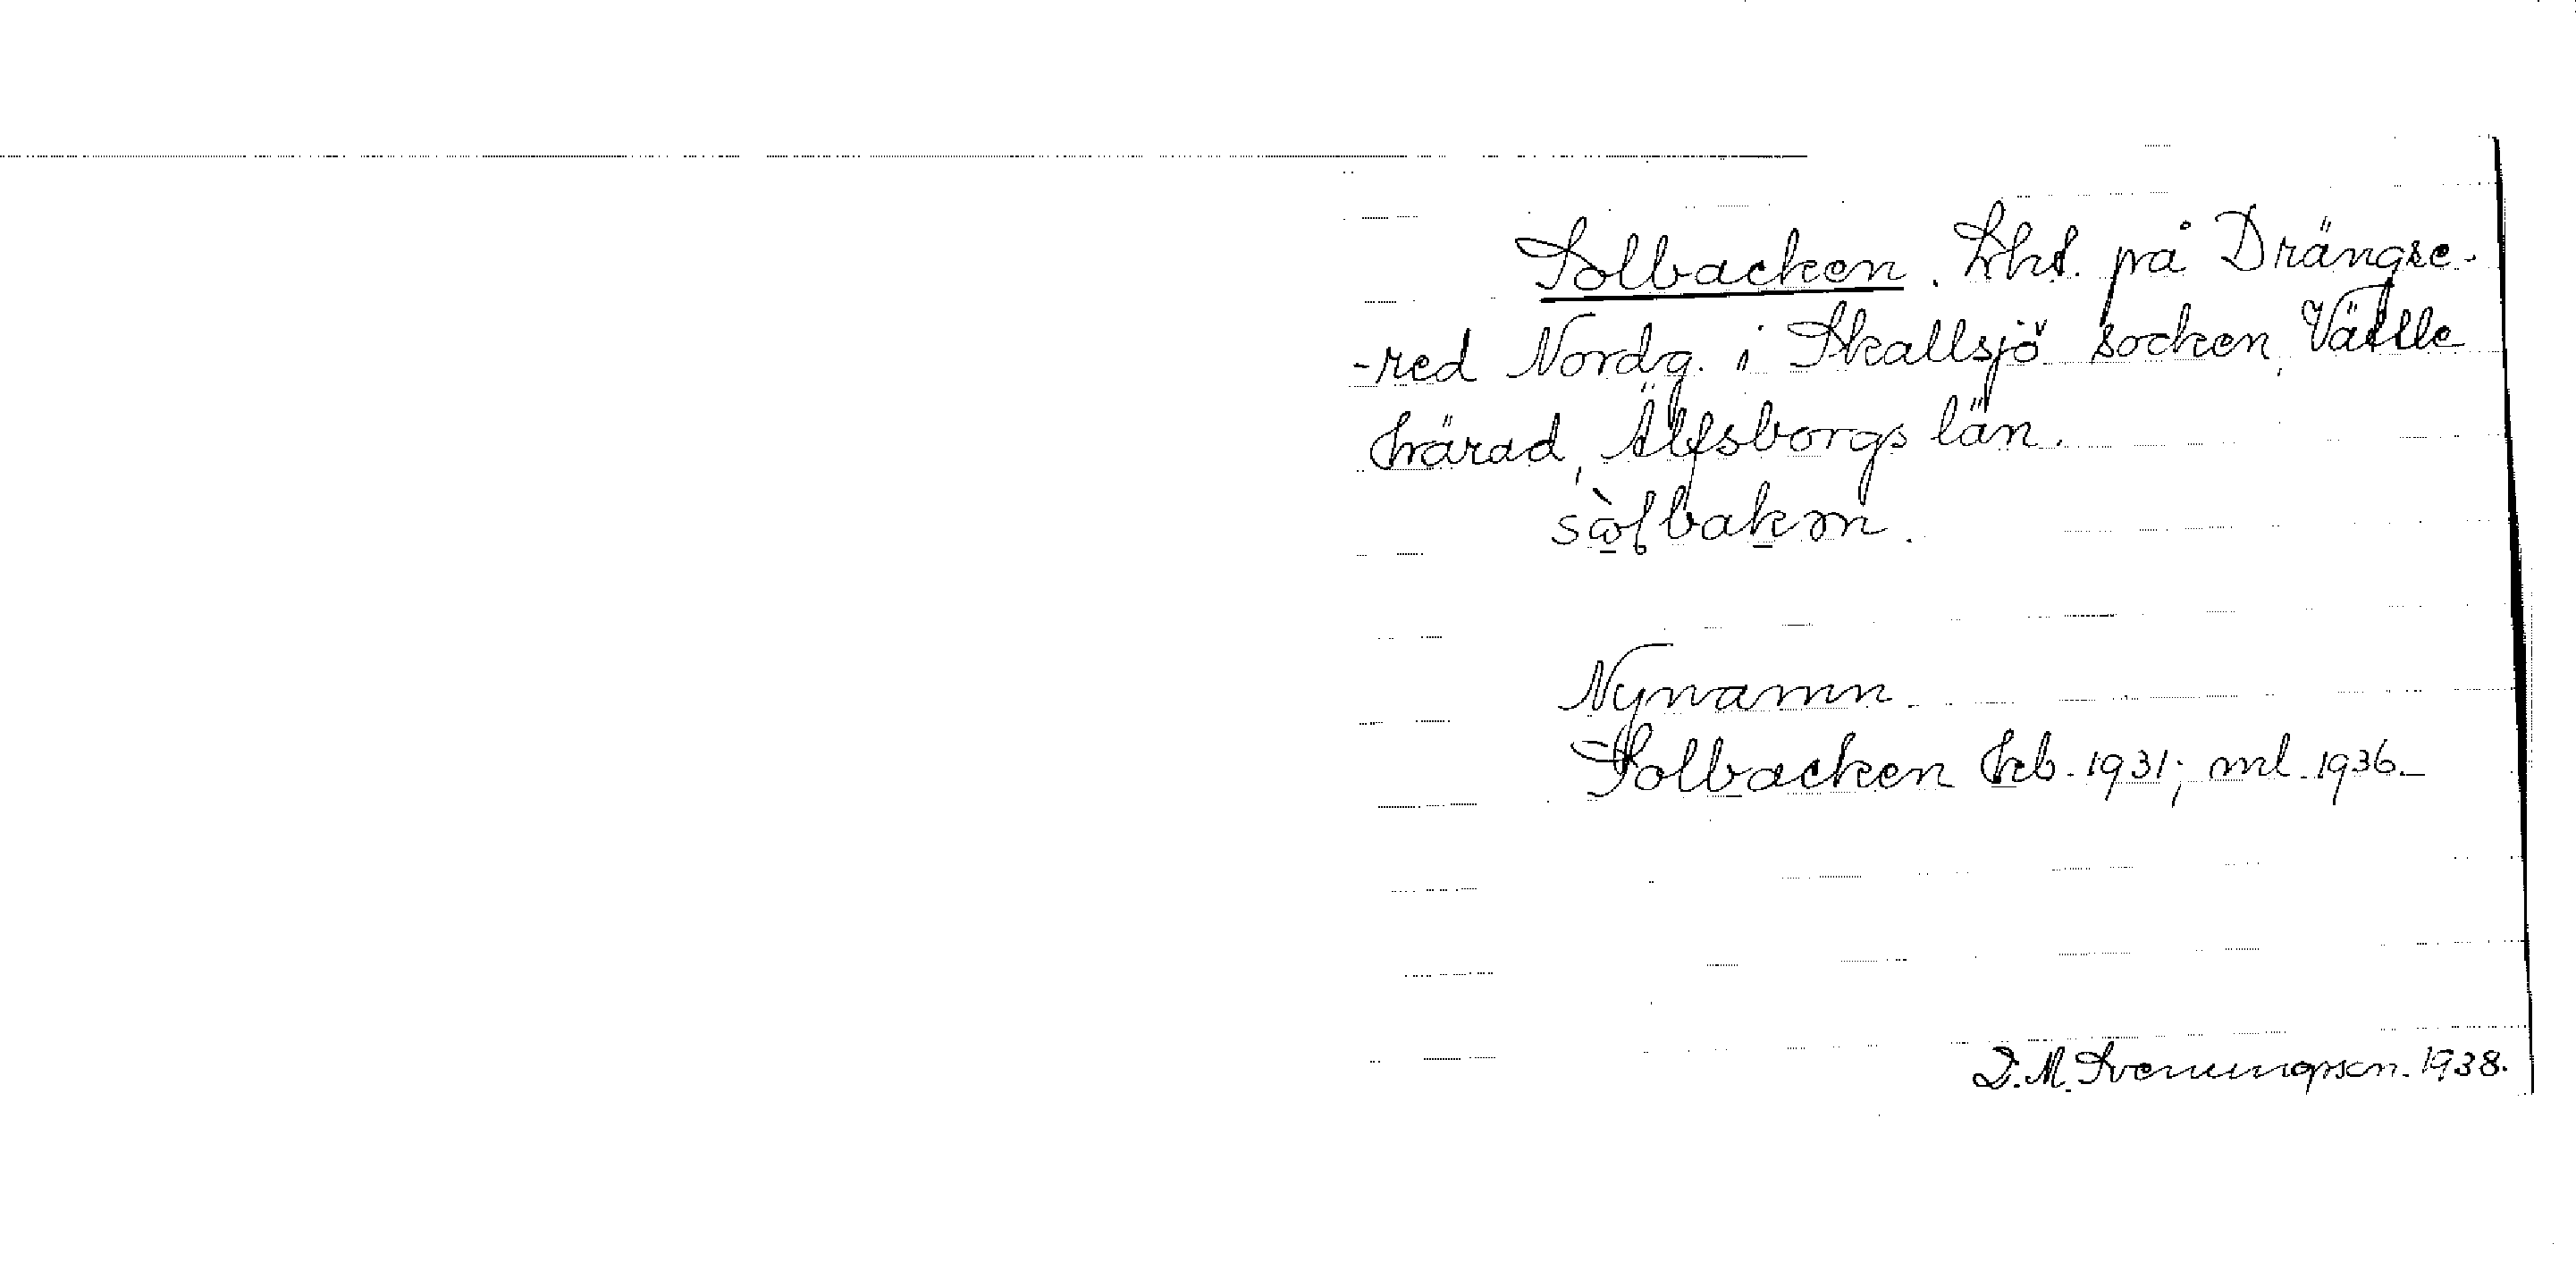 Solbacken. Lht. på Drängse-
-red Nordg. i Skallsjö socken, Vättle
härad, Älfsborgs län.
sòlbakən.
Nynamn.
Solbacken hcb. 1931; ml. 1936.
D. M. Svenungsson. 1938.